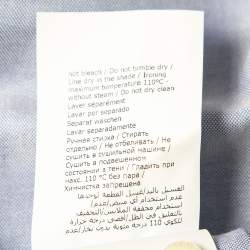 not bleach / Do not tumble dry /
Line dry in the shade / Ironing
maximum temperature 110°C -
without steam / Do not dry clean
Lavar séparément
Lavar por separado
Separat waschen
Lavare separadamente
Ручная стирка / Стирать
отдельно / Не отбеливать / Не
сушить в сушильной машине /
Сушить в подвешенном
состоянии в тени / Гладить при
макс. 110 °C без пара /
Химчистка запрещена
الغسيل باليد/غسل القطعة لوحدها
/عدم استخدام أي مبيض/عدم
استخدام مجففة الملابس/التجفيف
بالتعليق في الظل/أقصى درجة حرارة
للكوي 110 درجة مئوية بدون بخار/عدم